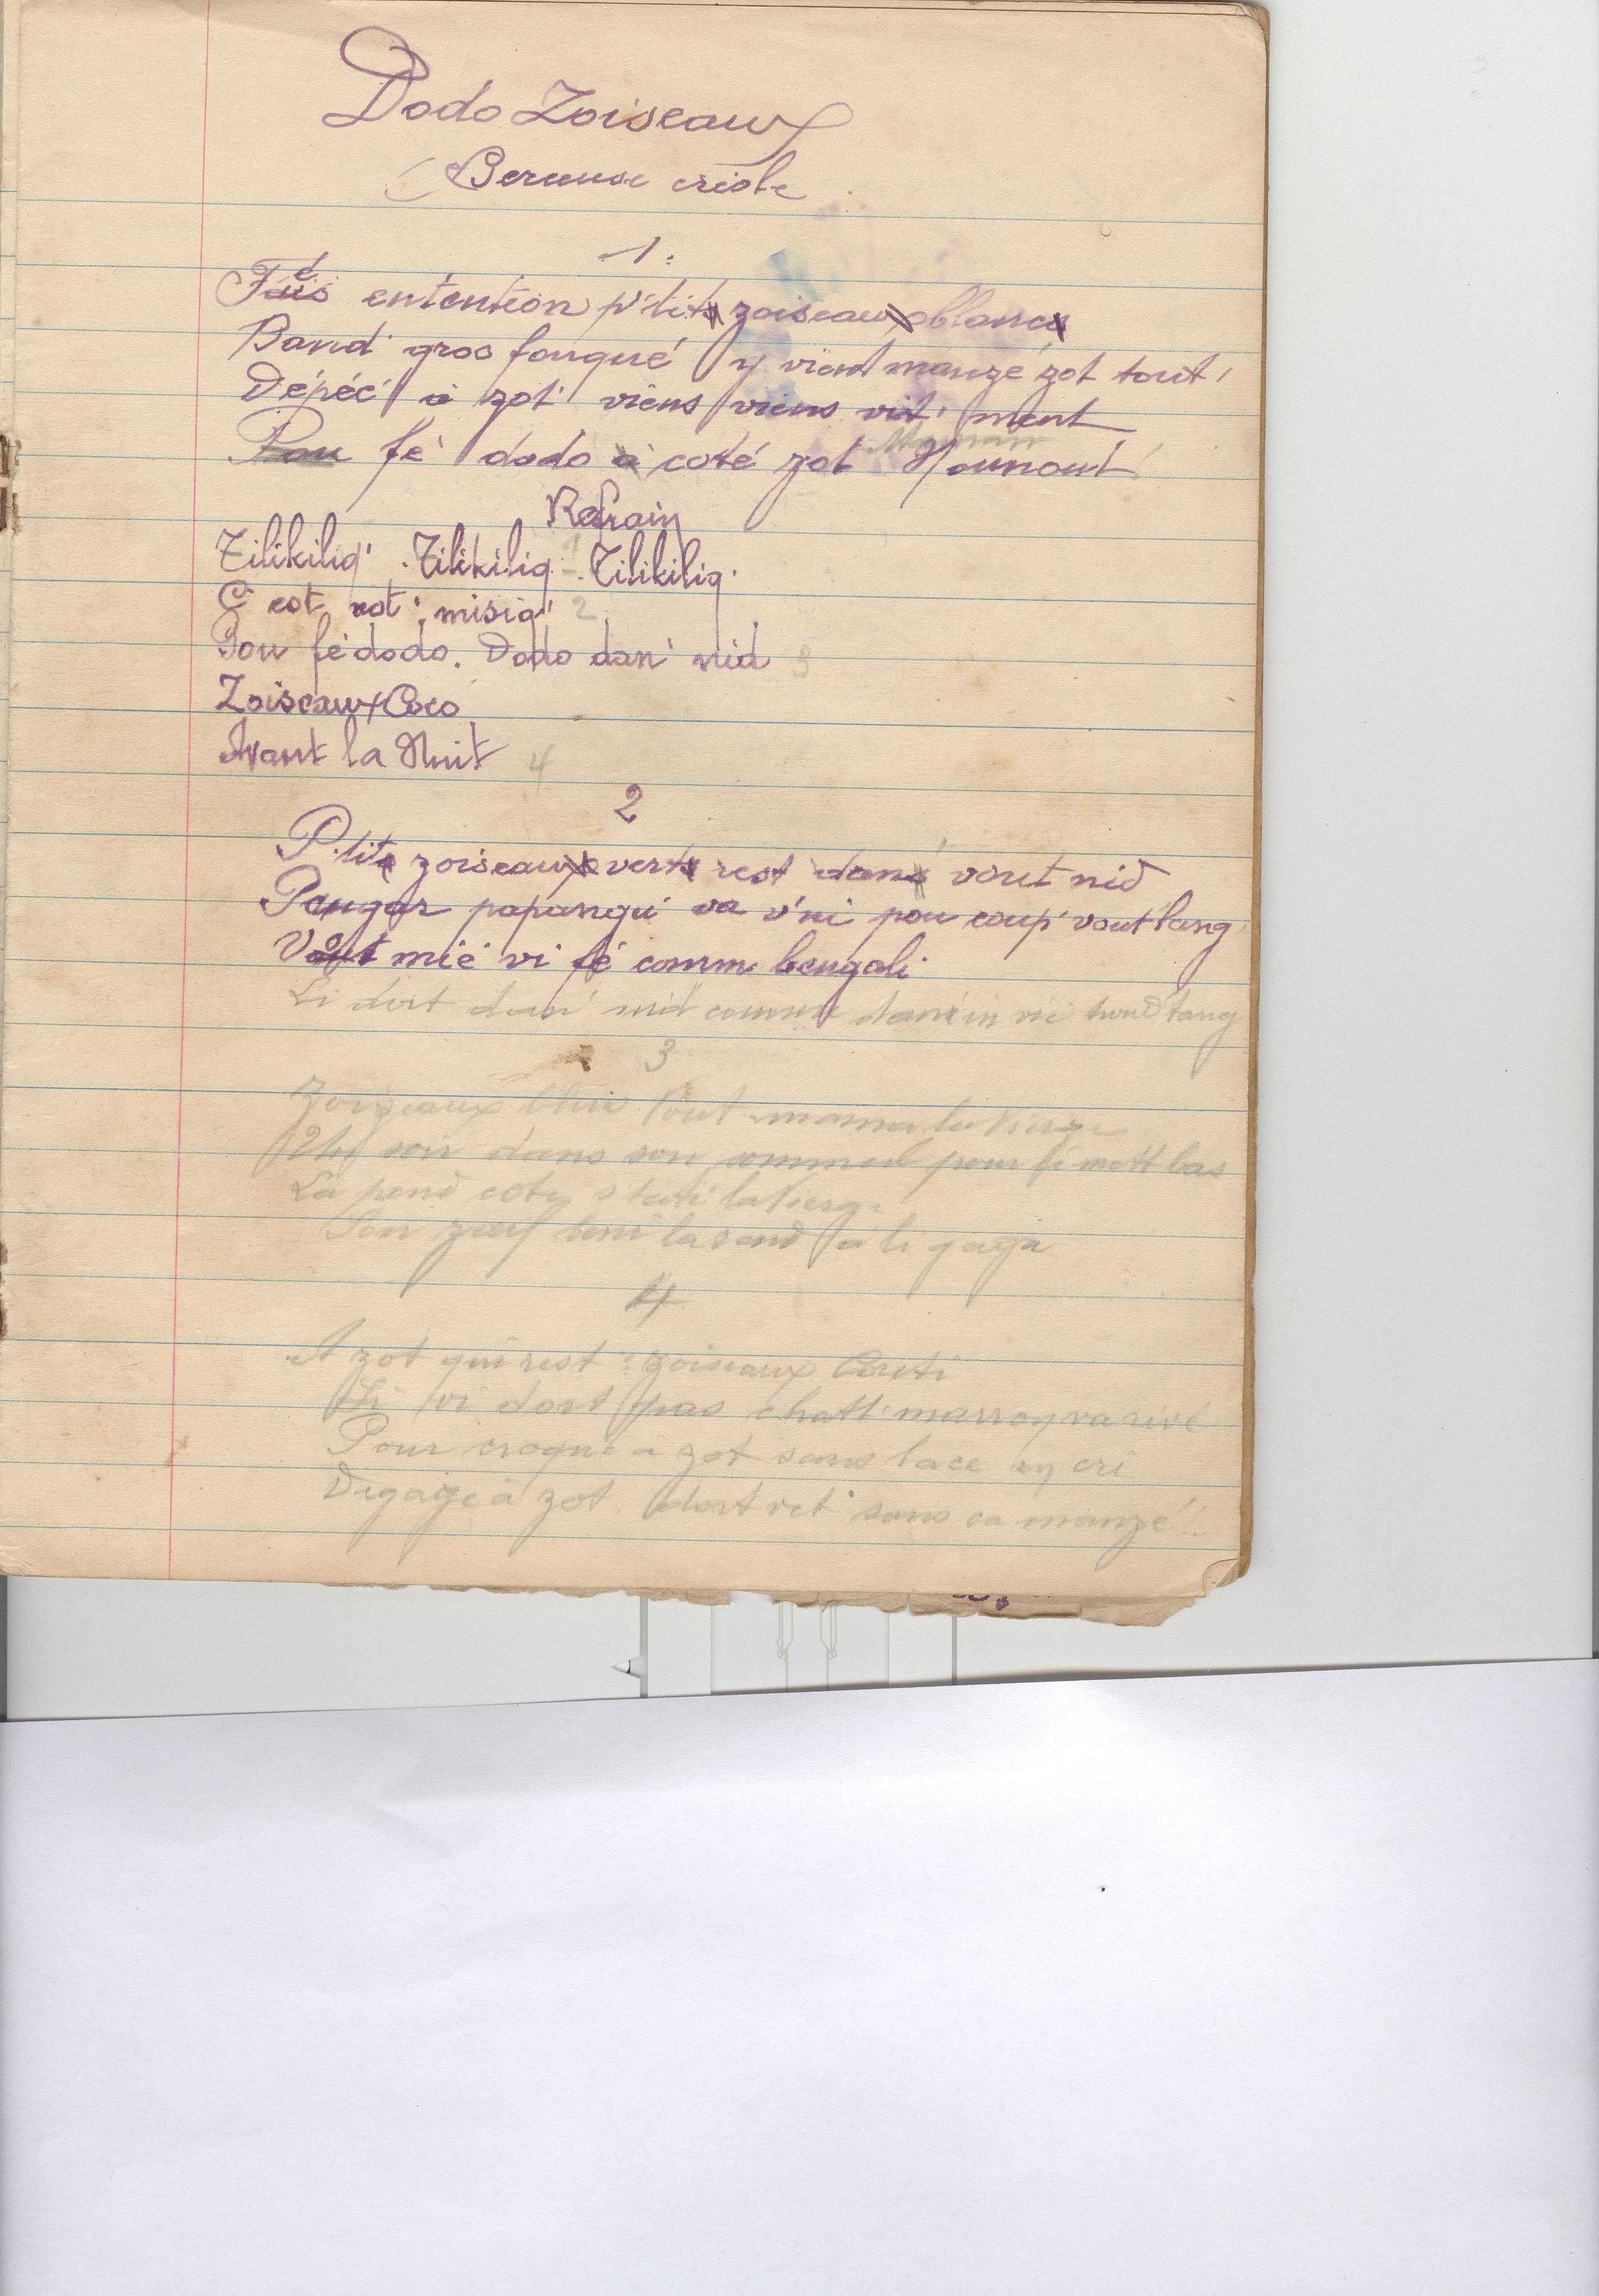 Dodo Zoiseaux
Berceuse créole
1.
Fé entention p'tit zoiseau blanc
Band' gros fouqué y vient manzé zot tout'
Dépéc' à zot' viens viens vit' ment
Pou fé dodo à coté zot Nounout'
Refrain
Tilikilig' . Tilikilig - 1 . Tilikilig.
C' est not' "misig" 2
Pou fé dodo. Dodo dan' nid 3
Zoiseaux Coco
Avant la Nuit 4
2
P'tit zoiseau vert rest dan' vout nid
Pangar papangu' va v'ni pou coup' vout lang
Vot mié vi fé comm bengali
Li dort dan' nid comme dan in vié tend
3
Zoizeaux bleu Vout mama la Vierge
soir dans son sommeil pour fé bas
La pond coté la Vierge
Son zeuf la rend à li gaga
4
A zot qui rest : zoiseaux Couti
Si vi dort pas chatt' marron va rivé
Pour croqué à zot sans in cri
Dégaze à zot dort vit' sans ça manzé !..